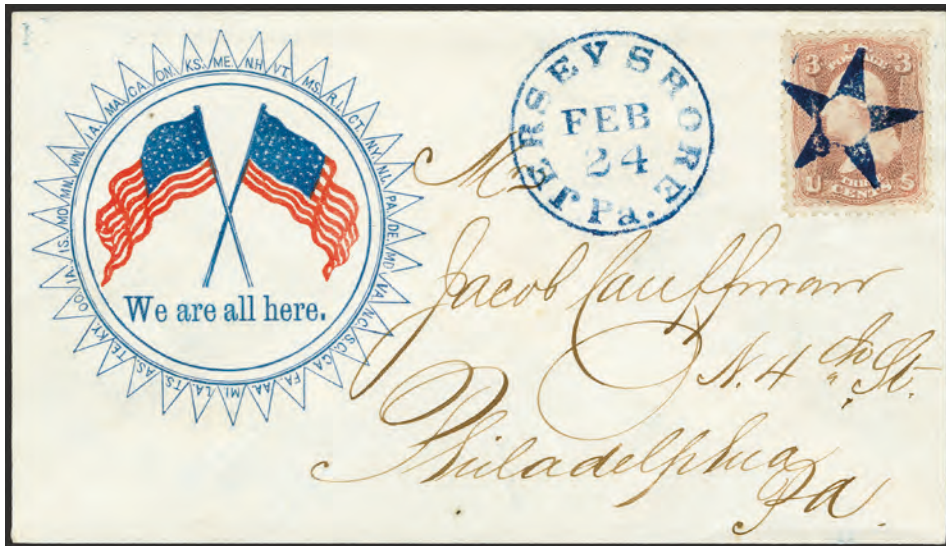 ME. N.H. VT. MS. R.I. CT. N.Y. N.J. PA. DE. MD. VA. N.C. S.C. GA. FA. AA. MI. LA. TS. AS. TE. KY. OO. IA. IS. MO. MN. WN. IA. MA. CA. ON. KS.
We are all here.
JERSEY SHORE
FEB
24
Pa.
U POSTAGE
3 3
U THREE S
CENTS
Mr
Jacob Cauffman
N. 4th St.
Philadelphia
Pa.